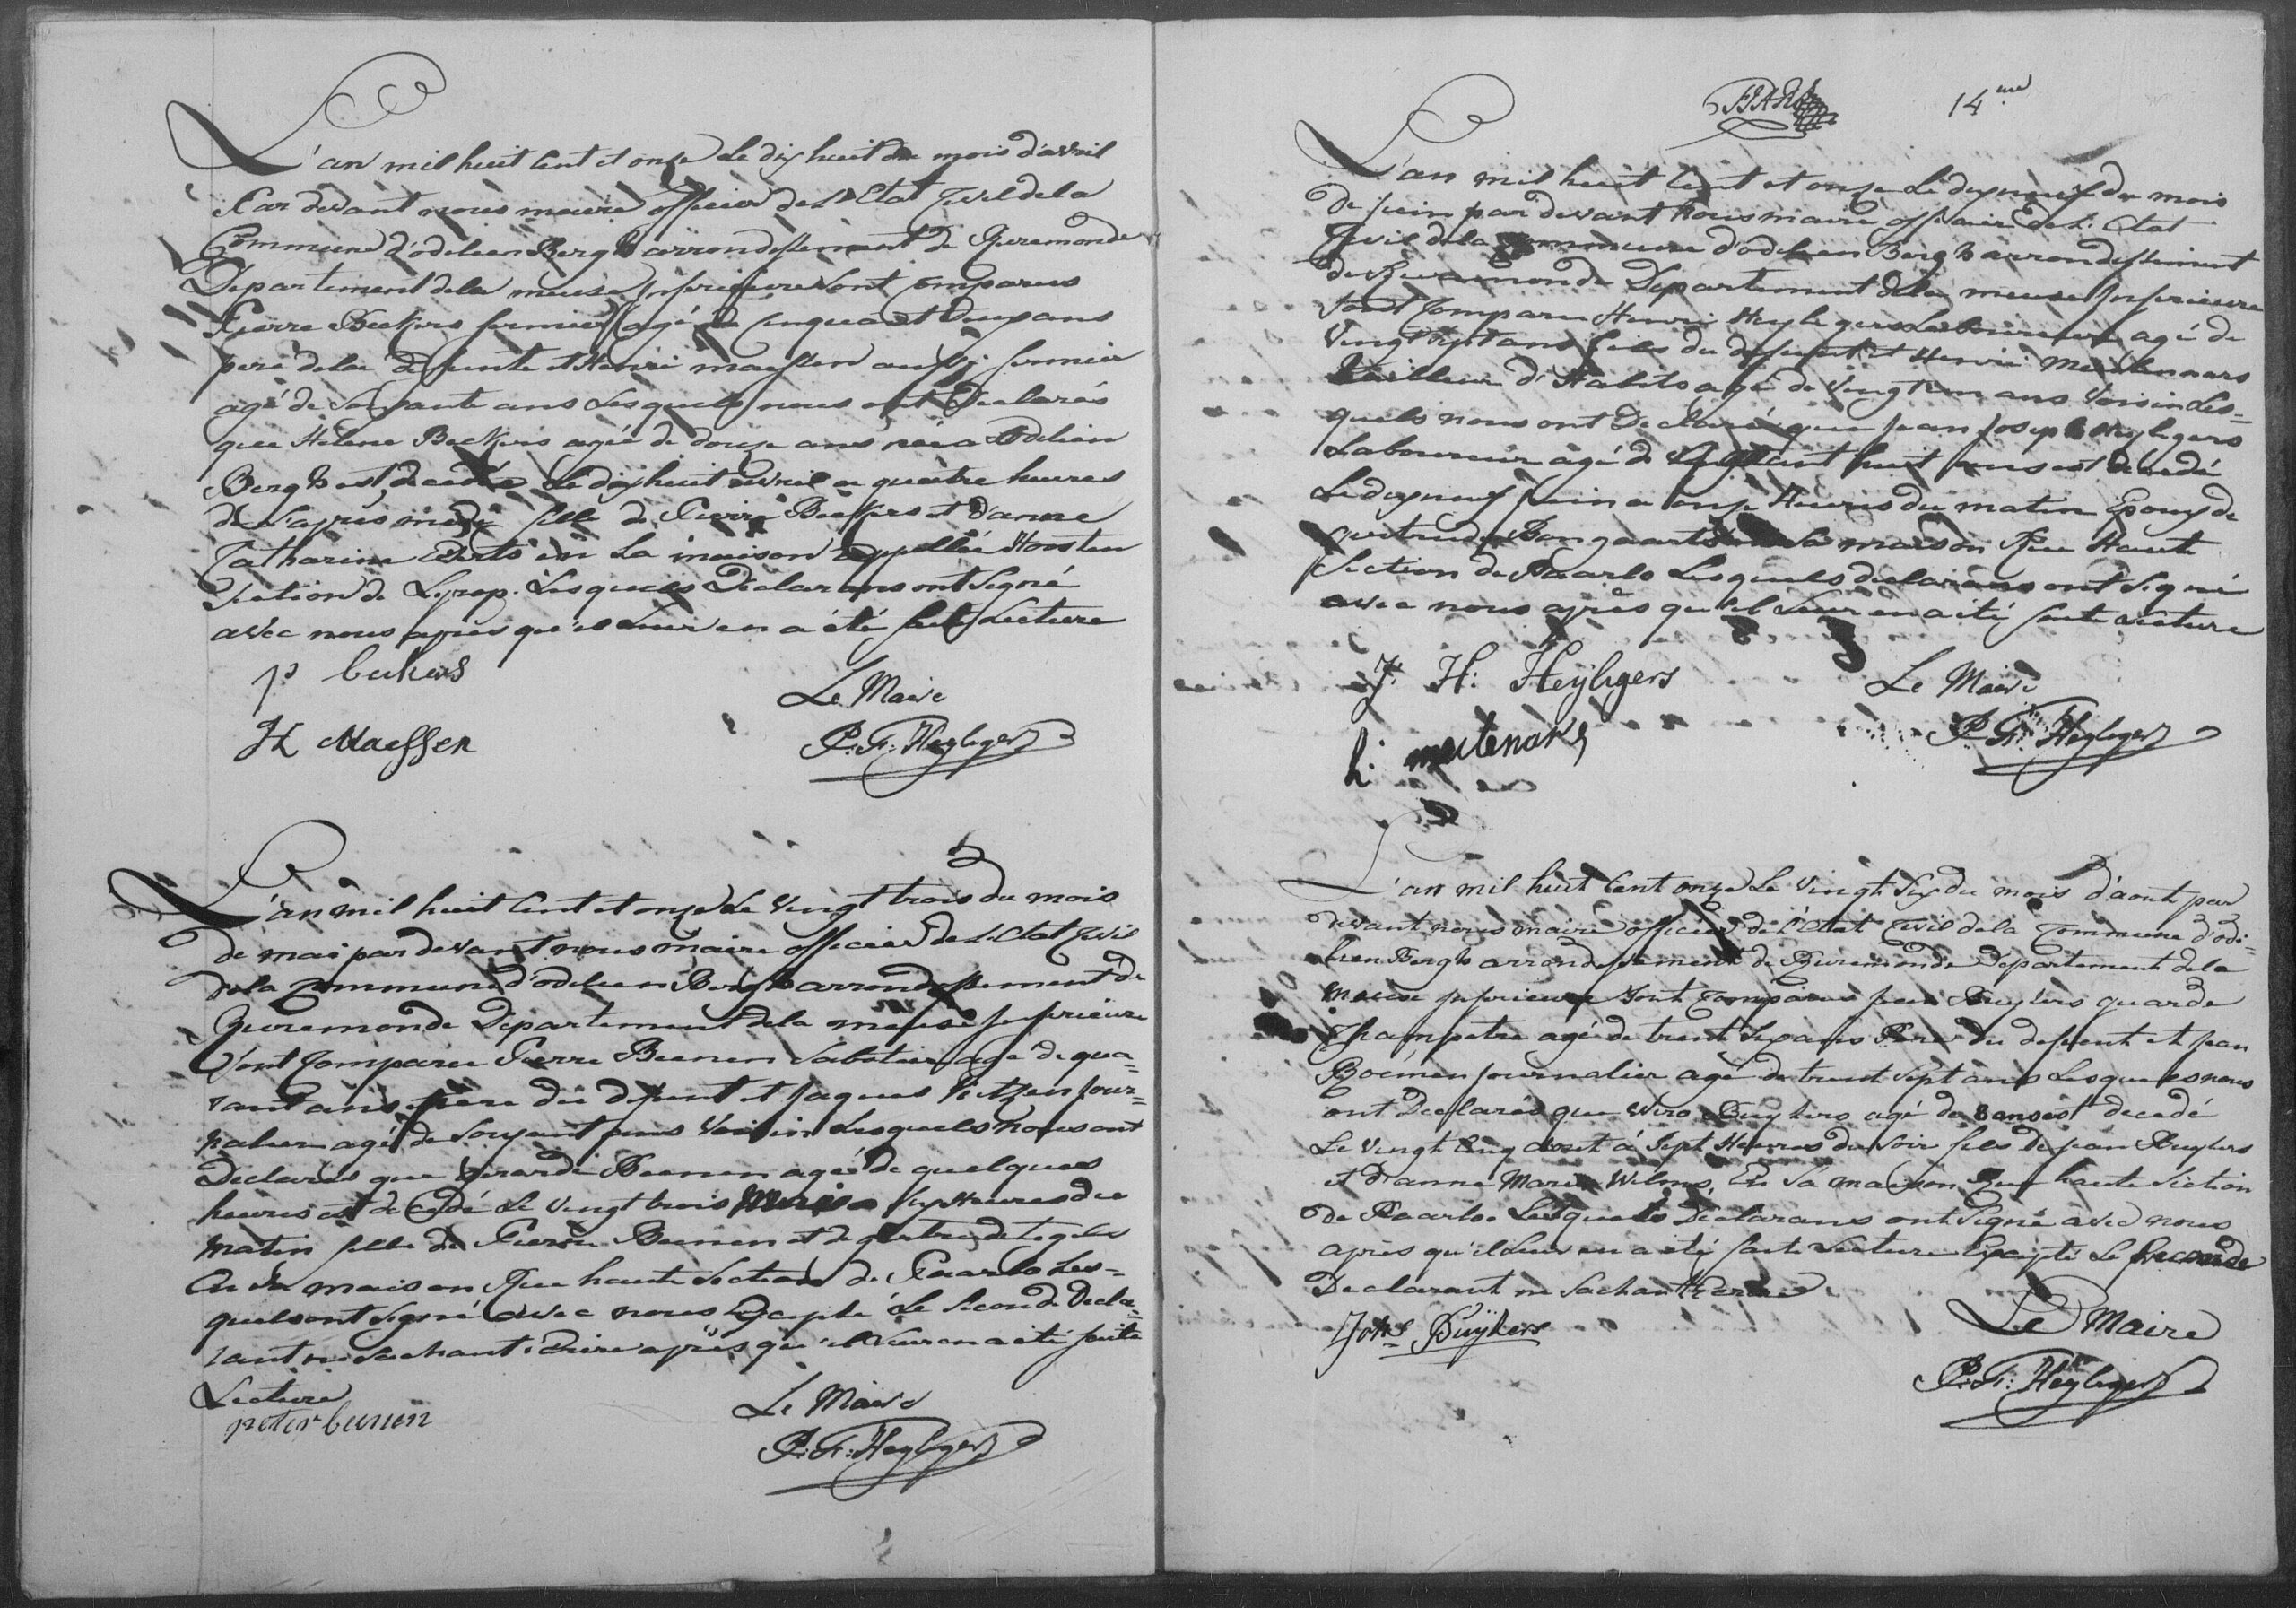 L'an mil huit Cent et onze Le dix huit du mois d'avril
Par devant nous maire officier de L'Etat Civil de la
Commune d'odelien Bergh arrondissement de Ruremonde
Departement de la meuse Inferieure sont Comparus
Pierre Beckers fermier agé de Cinquant Deux ans
pere de la defunte et Henri maessen aussj fermier
agé de Soixante ans Lesquels nous ont Declarés
que Helene Beckers agée de douze ans née a Odelien
Bergh est decedée Le dix huit avril a quatre heures
de L'apres midi fille de Pierre Beckers et D'anne
Catharine Eerts en La maison appellée Hoosten
Section de Lerop. Lesquels Declarans ont Signé
avec nous apres qu'il Leur en a été faite Lecture
p beckers
Le Maire
H Maessen
P. F: Heyligers
L'an mil huit Cent et onze Le Vingt trois du mois
de mai par devant nous maire officier de L'Etat Civil
de la Commune d'odelien Bergh arrondissement de
Ruremonde Departement de la meuse Inferieure
Sont Comparu Pierre Beenen Sabotier agé de qua=
rant ans pere du defunt et Jaques Vitzen Jour=
nalier agé de Soixant ans Voisin Lesquels nous ont
Declarés que Gerarde Beenen agée de quelques
heures est decedé Le Vingt trois Mai a Six Heures du
matin fille de Pierre Beenen et de gertrude
En Sa maison Rue haute Section de Paarlo Les=
quels ont Signé avec nous Excepté Le Second Decla=
rant ne Sachant Ecrire après qu'il Leur en a été faite
Lecture
peter bennen
Le Maire
P. F: Heyligers
14me
L'an mil huit Cent et onze Le dix neuf du mois
de juin par devant nous maire officier de L'Etat
Civil de la Commune d'odelien Bergh arrondissement
de Ruremonde Departement de la meuse Inferieure
Sont Comparu Henri Heyligers Laboureur agé de
Vingt Sept ans fils du defunt et Henri Meulenaars
tailleur d'Habits agé de Vingt un ans Voisin Les=
quels nous ont Declaré que jean Joseph Heyligers
Laboureur agé de huit ans est decedé
Le dix neuf juin a onze Heures du matin Epoux de
gertrude en Sa maison Rue Haute
Section de Paarlo Lesquels declarans ont Signé
avec nous après qu'il Leur en a été faite Lecture
J. H: Heyligers
Le Maire
h: meulenars
P. F: Heyligers
L'an mil huit Cent onze Le Vingt Six du mois d'aout par
devant nous maire officier de L'Etat Civil de la Commune d'odi=
lien Bergh arrondissement de Ruremonde Departement de la
Meuse Inferieure Sont Comparus jean Buykers guarde
Champetre agé de trent Six ans Pere du defunt et jean
Boemen journalier agé de trent Sept ans Lesquels nous
ont Declarés que Wiro Buykers agé de 3 ans est decedé
Le Vingt Cinq aout à Sept Heures du Soir fils de jean Buykers
et d'anne Marie Wilms, En Sa maison Rue haute Section
de Paarlo. Lesquels Declarans ont Signé avec nous
après qu'il Leur en a été faite Lecture Excepté Le Seconde
Declarant ne Sachant Ecrire
Johs Buÿkers
Le Maire
P. F: Heyligers